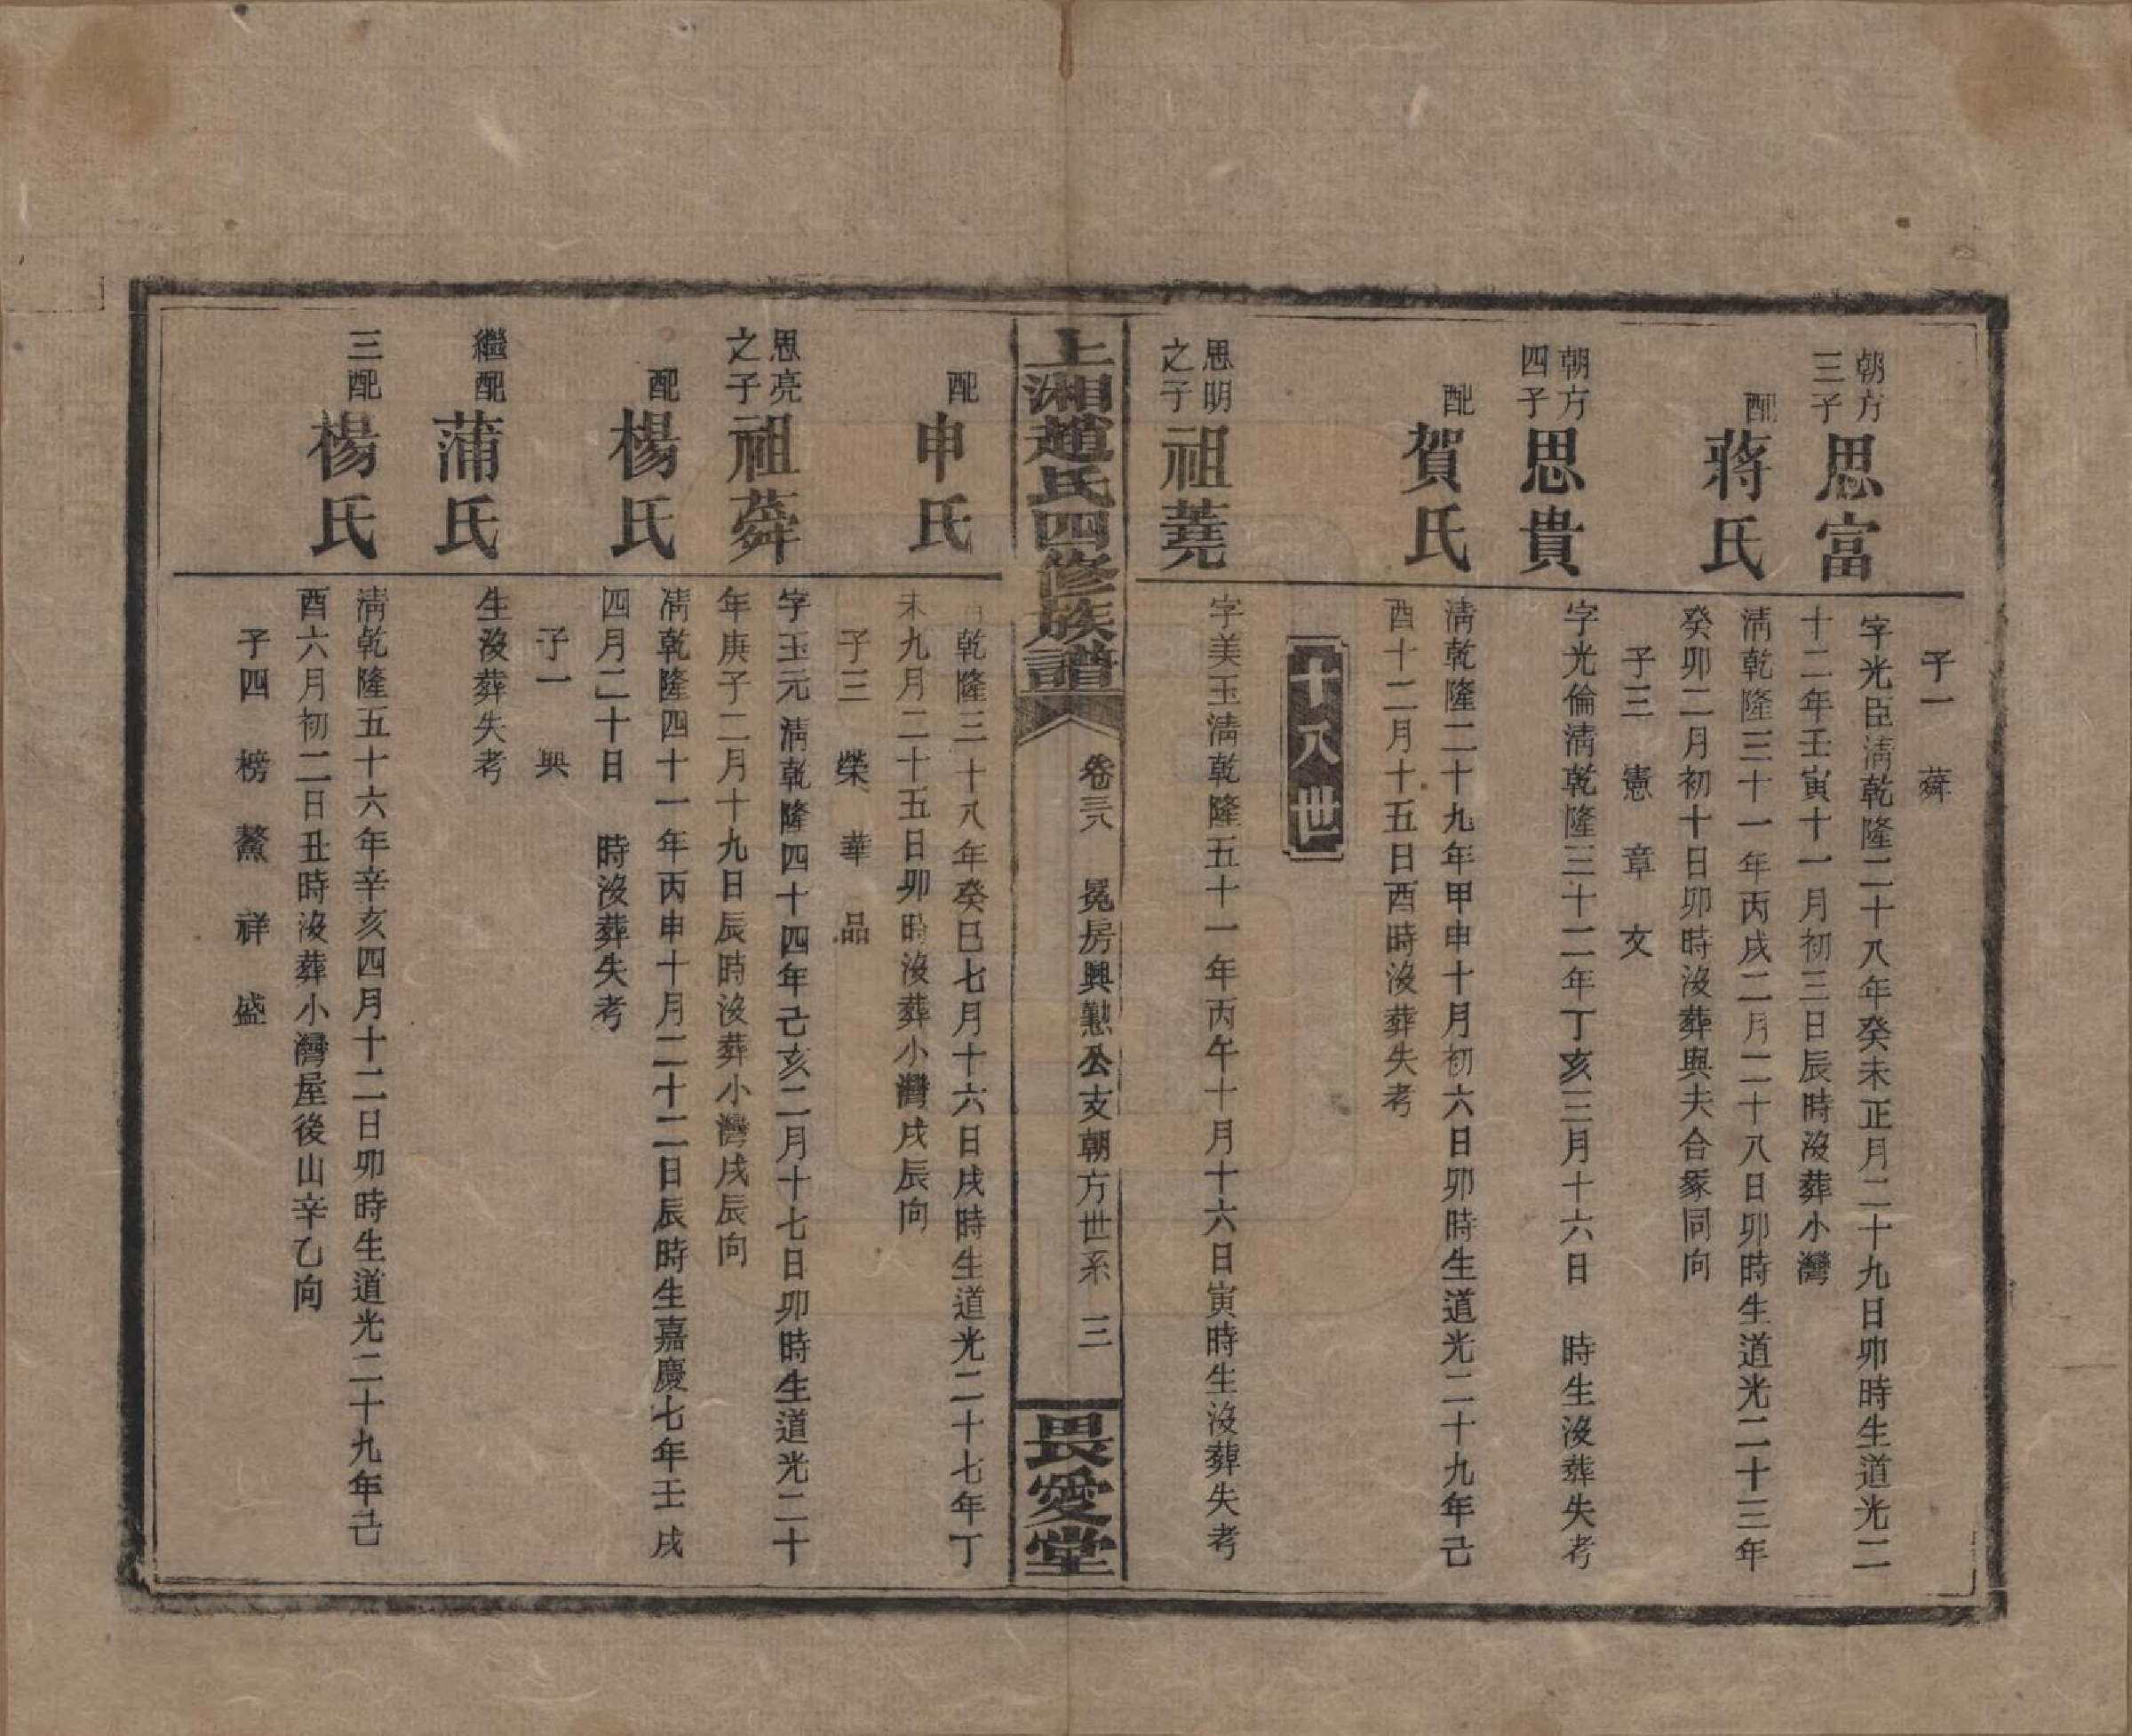 子一 蕣
朝方三子
思富
字光臣淸乾隆二十八年癸未正月二十九日卯時生道光二
十二年壬寅十一月初三日辰時沒葬小灣
配
蔣氏
淸乾隆三十一年丙戌二月二十八日卯時生道光二十三年
癸卯二月初十日卯時沒葬與夫合冢同向
子三 憲 章 文
朝方四子
思貴
字光倫淸乾隆三十二年丁亥三月十六日 時生沒葬失考
配
賀氏
淸乾隆二十九年甲申十月初六日卯時生道光二十九年己
酉十二月十五日酉時沒葬失考
十八世
思明之子
祖蕘
字美玉淸乾隆五十一年丙午十月十六日寅時生沒葬失考
上湘趙氏四修族譜
卷三八 冕房興懃公支朝方世系 三
畏愛堂
配
申氏
淸乾隆三十八年癸巳七月十六日戌時生道光二十七年丁
未九月二十五日卯時沒葬小灣戌辰向
子三 榮 華 品
思亮之子
祖蕣
字玉元淸乾隆四十四年己亥二月十七日卯時生道光二十
年庚子二月十九日辰時沒葬小灣戌辰向
配
楊氏
淸乾隆四十一年丙申十月二十二日辰時生嘉慶七年壬戌
四月二十日 時沒葬失考
子一 興
繼配
蒲氏
生沒葬失考
三配
楊氏
淸乾隆五十六年辛亥四月十二日卯時生道光二十九年己
酉六月初二日丑時沒葬小灣屋後山辛乙向
子四 榜 鰲 祥 盛